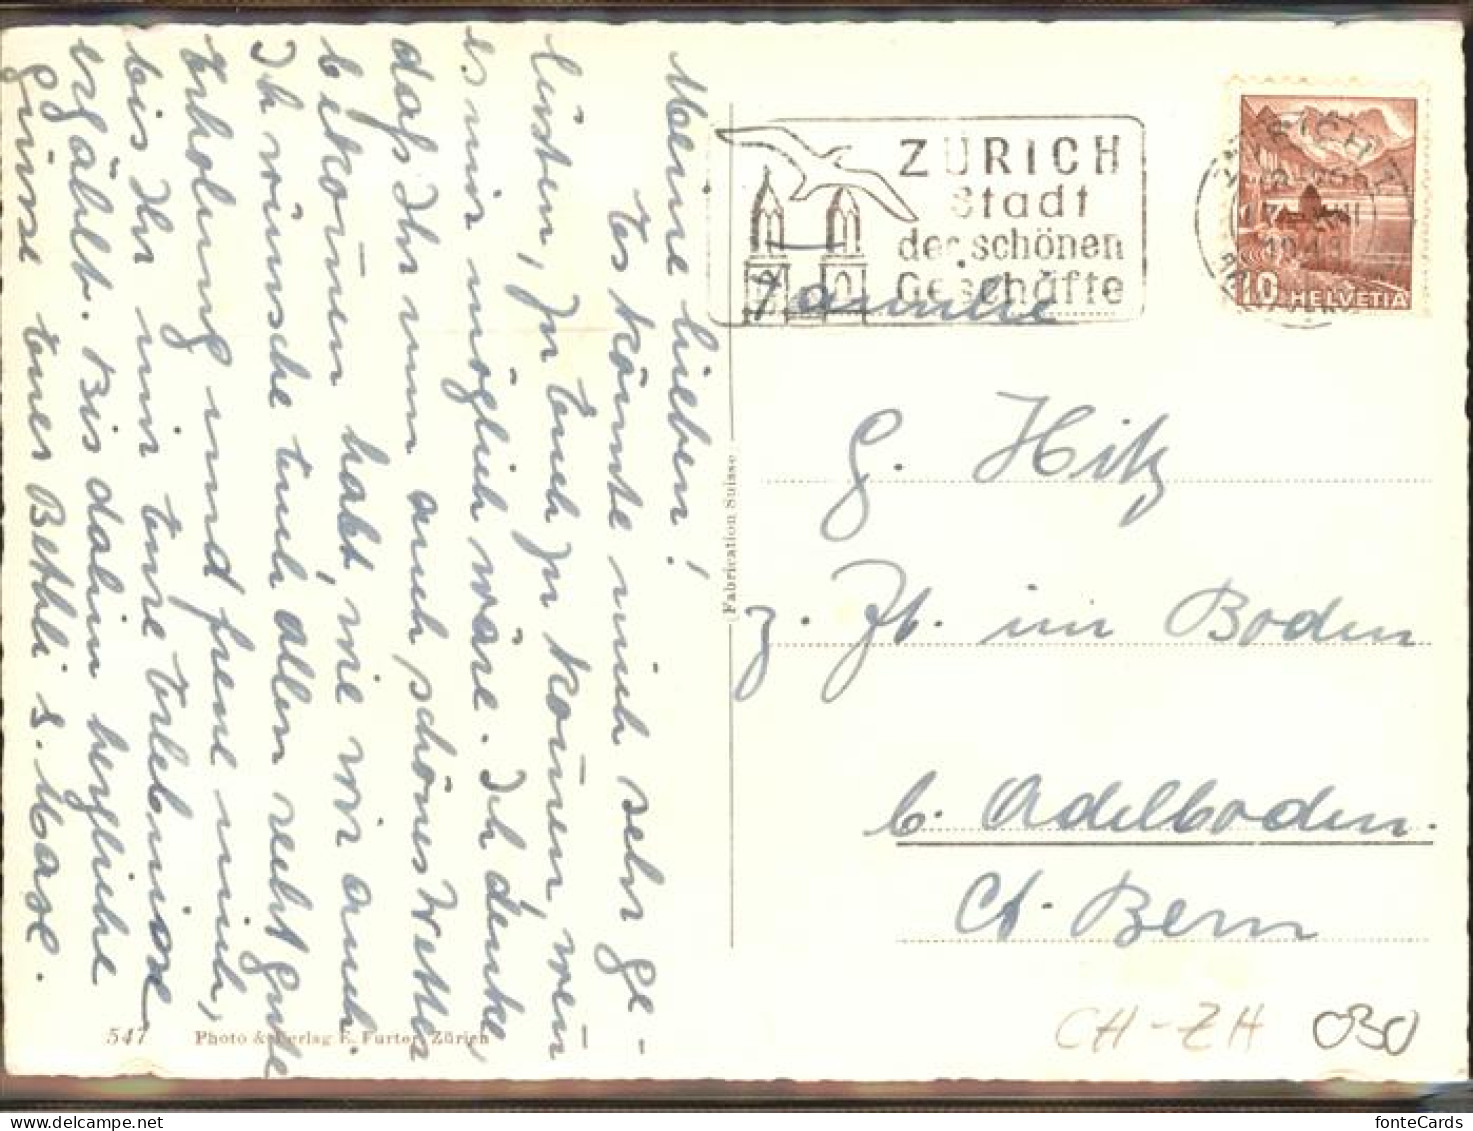 Meine lieben!
Es könnte mich sehr ge-
lüsten, zu Euch zu kom̄en, wen̄
es mir möglich wäre. Ich denke,
dass Ihr nun auch schönes Wetter
bekom̄en habt, wie wir auch.
Ich wünsche Euch allen recht gute
Erholung und freue mich,
bis Ihr mir Eure Erlebnisse
erzählt. Bis dahin herzliche
Grüsse Euer Bethli s. Mase.
547 Photo & Verlag E. Furter, Zürich
Fabrication Suisse
ZÜRICH
Stadt
der schönen
Geschäfte
10 HELVETIA
Familie
G. Hitz
z. Zt. im Boden
b. Adelboden.
Ct. Bern
CH-ZH 030
fonteCards